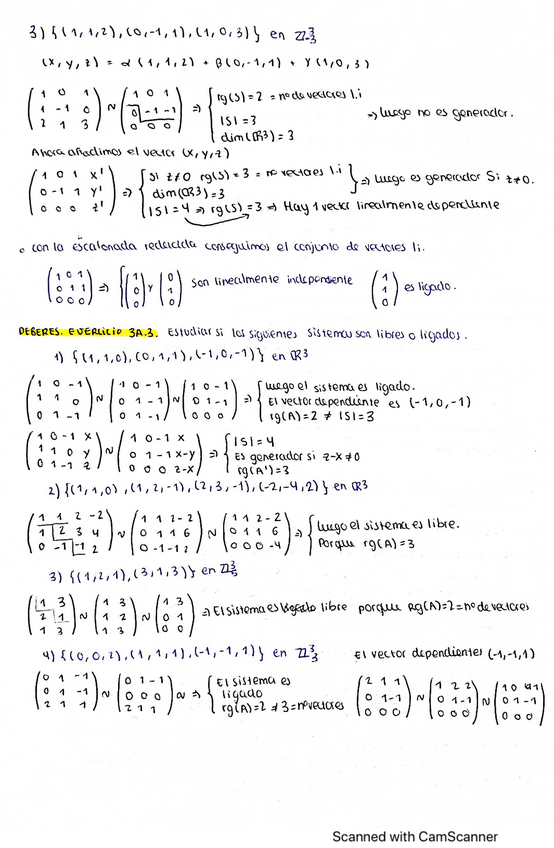 3) {(1,1,2),(0,-1,1),(1,0,3)} en ℤ³₃
(x,y,z) = α(1,1,2) + β(0,-1,1) + γ(1,0,3)
(1 0 1 / 1 -1 0 / 2 1 3) ~ (1 0 1 / 0 -1 -1 / 0 0 0) ⇒ { rg(S)=2 = nº de vectores l.i / |S|=3 / dim(ℝ3)=3 ⇒ luego no es generador.
Ahora añadimos el vector (x,y,z)
(1 0 1 x' / 0 -1 1 y' / 0 0 0 z') ⇒ { Si z≠0 rg(S)=3 = nº vectores l.i / dim(ℝ3)=3 } ⇒ luego es generador si z≠0. / |S|=4 ⇒ rg(S)=3 ⇒ Hay 1 vector linealmente dependiente
con la escalonada reducida conseguimos el conjunto de vectores li.
(1 0 1 / 0 1 1 / 0 0 0) ⇒ {(1 / 0 / 0) y (0 / 1 / 0) son linealmente independiente (1 / 1 / 0) es ligado.
DEBERES. EJERCICIO 3A.3. Estudiar si los siguientes sistemas son libres o ligados.
1) {(1,1,0),(0,1,1),(-1,0,-1)} en ℝ3
(1 0 -1 / 1 1 0 / 0 1 -1) ~ (1 0 -1 / 0 1 -1 / 0 1 -1) ~ (1 0 -1 / 0 1 -1 / 0 0 0) ⇒ { luego el sistema es ligado. / El vector dependiente es (-1,0,-1) / rg(A)=2 ≠ |S|=3
(1 0 -1 x / 1 1 0 y / 0 1 -1 z) ~ (1 0 -1 x / 0 1 -1 x-y / 0 0 0 z-x) ⇒ { |S|=4 / Es generador si z-x≠0 / rg(A')=3
2) {(1,1,0),(1,2,-1),(2,3,-1),(-2,-4,2)} en ℝ3
(1 1 2 -2 / 1 2 3 4 / 0 -1 -1 2) ~ (1 1 2 -2 / 0 1 1 6 / 0 -1 -1 2) ~ (1 1 2 -2 / 0 1 1 6 / 0 0 0 -4) ⇒ { luego el sistema es libre. / Porque rg(A)=3
3) {(1,2,1),(3,1,3)} en ℤ³₅
(1 3 / 2 1 / 1 3) ~ (1 3 / 1 2 / 1 3) ~ (1 3 / 0 1 / 0 0) ⇒ El sistema es libre porque Rg(A)=2=nº de vectores
4) {(0,0,2),(1,1,1),(-1,-1,1)} en ℤ³₃ El vector dependientes (-1,-1,1)
(0 1 -1 / 0 1 -1 / 2 1 1) ~ (0 1 -1 / 0 0 0 / 2 1 1) ~ ⇒ { El sistema es / ligado / rg(A)=2 ≠ 3=nº vectores (2 1 1 / 0 1 -1 / 0 0 0) ~ (1 2 2 / 0 1 -1 / 0 0 0) ~ (1 0 / 0 1 -1 / 0 0 0)
Scanned with CamScanner